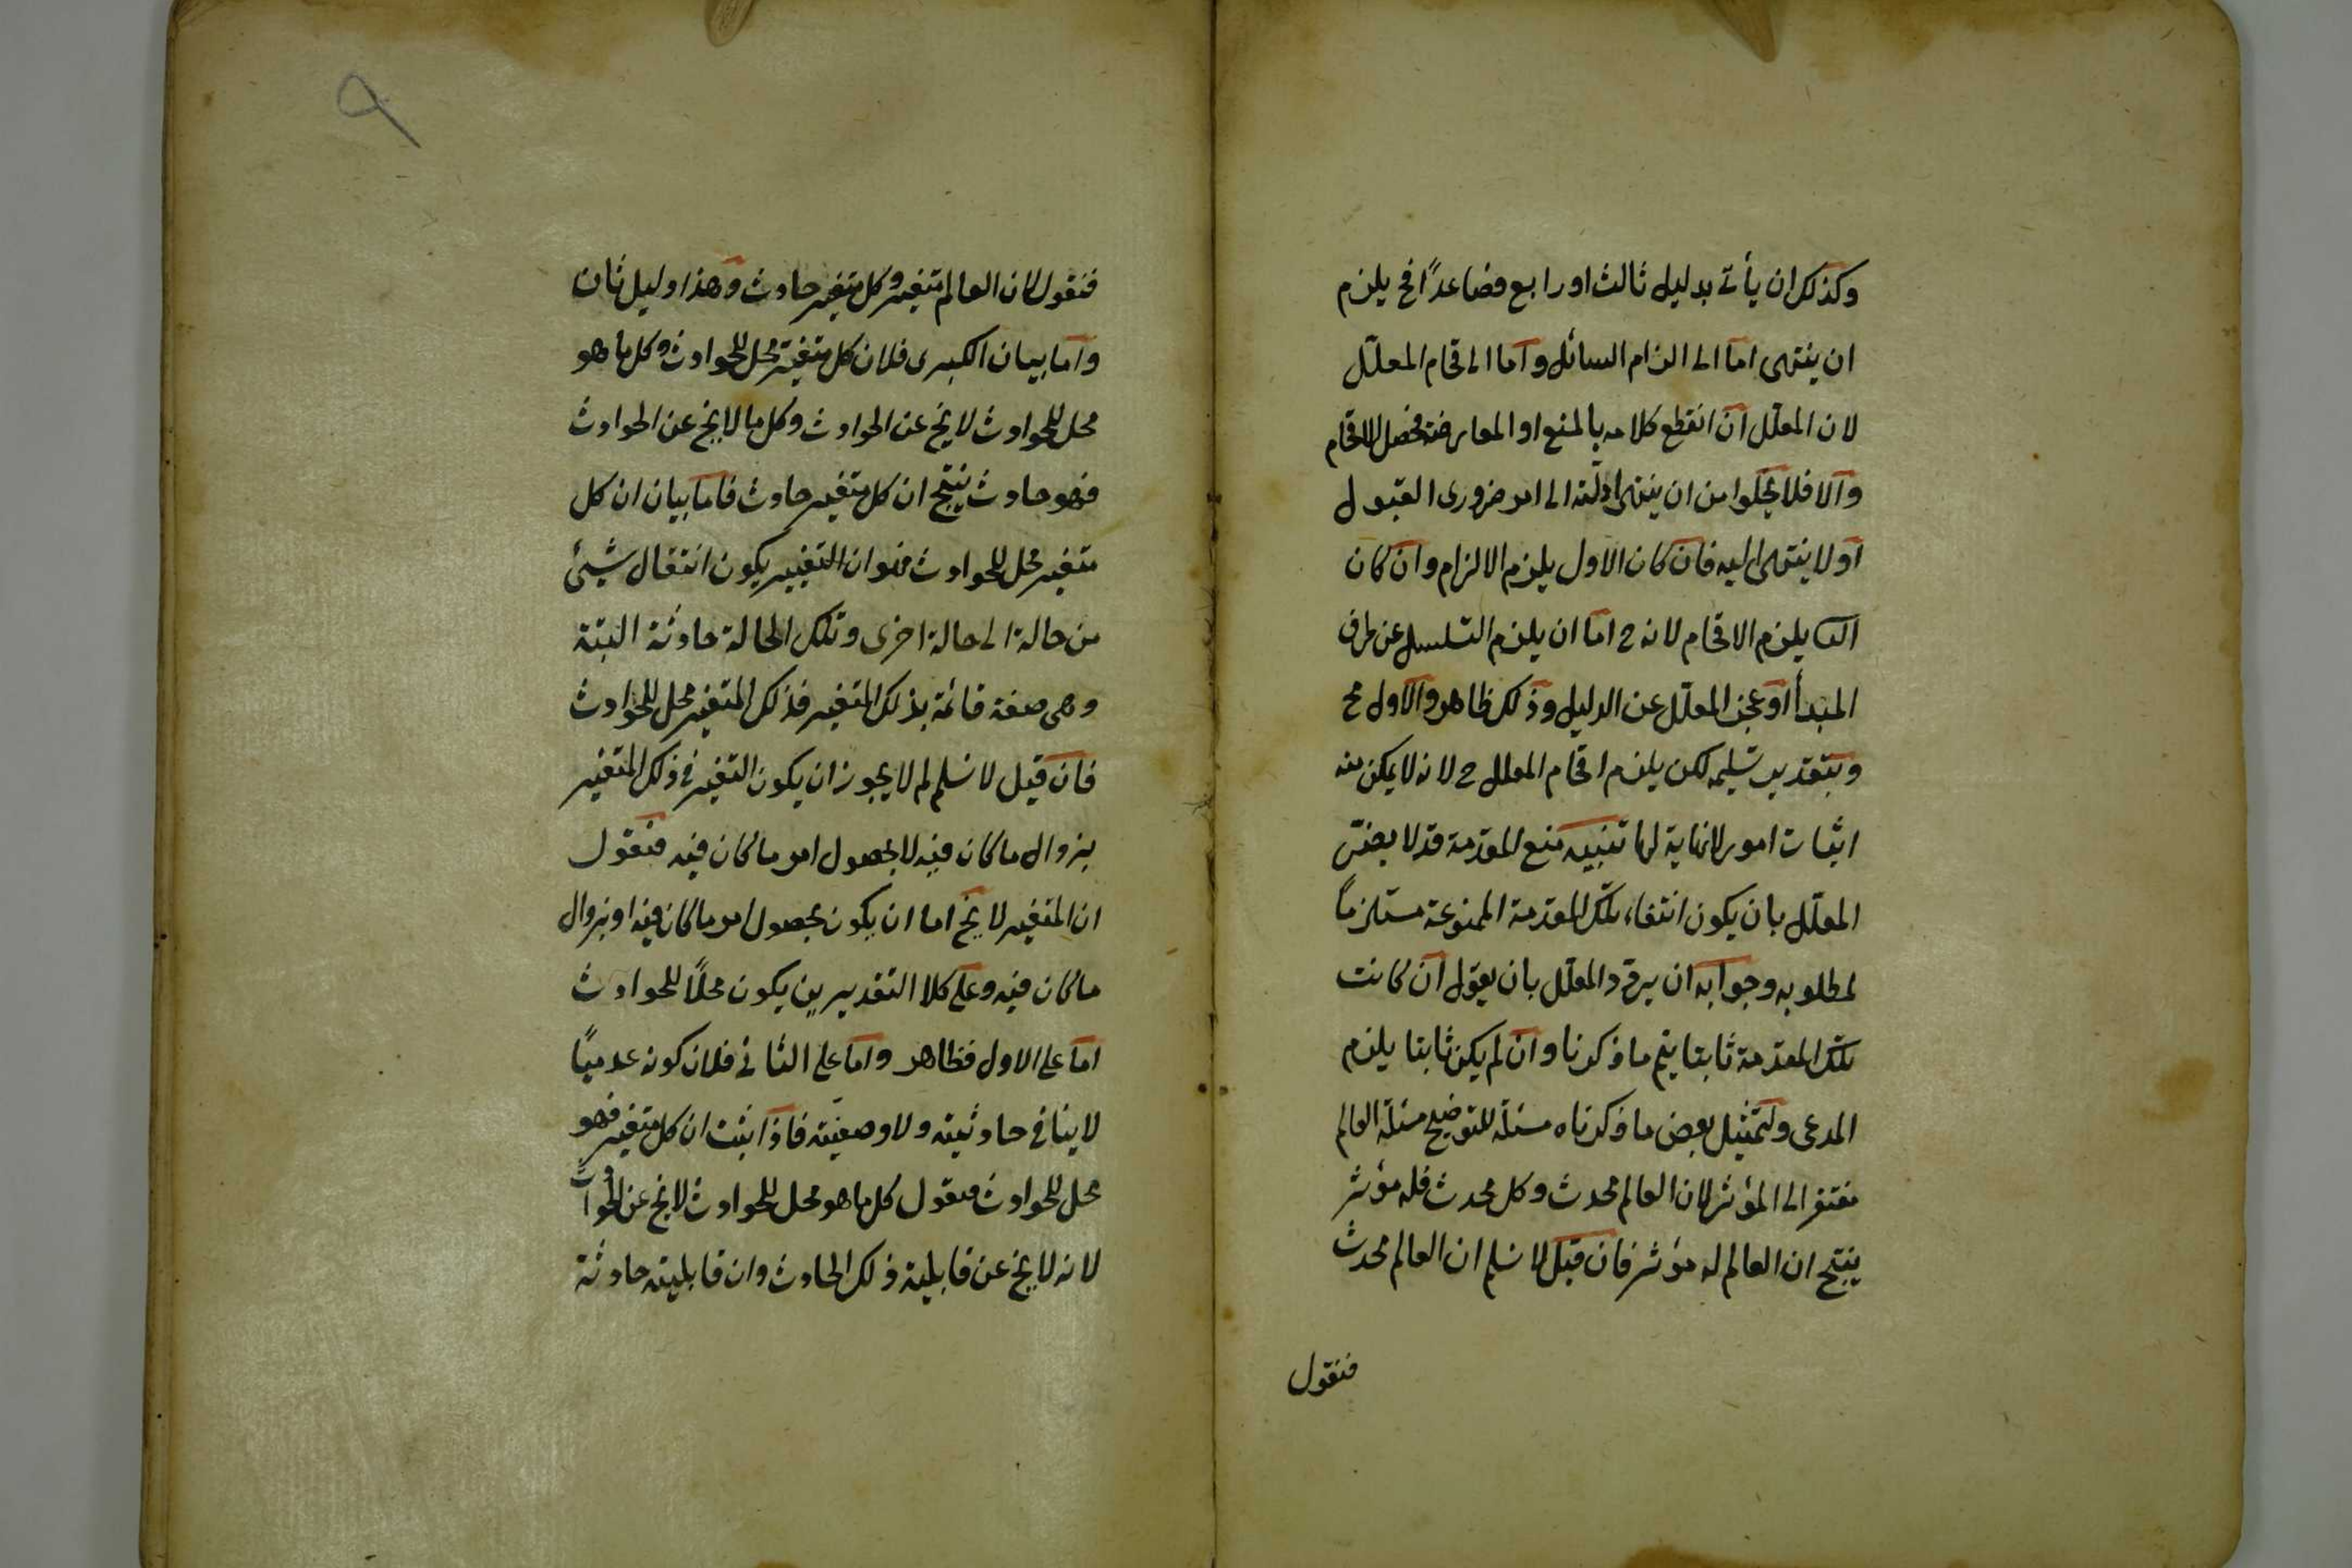 وكذلك ان يأتى بدليل ثالث او رابع فصاعداً فح يلزم
ان ينتهى اما الى الزام السائل واما الى قحام المعلّل
لان المعلّل ان انقطع كلامه بالمنع او المعارضة فحصل الاقحام
والا فلا يخلوا من ان ينتهى ادلّته الى امر ضرورى القبول
او لا ينتهى اليه فان كان الاول يلزم الالزام وان كان
الثـا يلزم الاقحام لانه ح اما ان يلزم التسلسل عن طرف
المبدأ او عجز المعلّل عن الدليل وذلك ظاهر والاول مح
وبتقدير تسليمه لكن يلزم اقحام المعلل ح لانه لا يمكن منه
اثبات امور لا نهاية لها تنبيه منع المقدمة قد لا يضرّ
المعلّل بان يكون انتفاء تلك المقدمة الممنوعة مستلزماً
لمطلوبه وجوابه ان يردّد المعلّل بان يقول ان كانت
تلك المقدمة ثابتا يتم ما ذكرنا وان لم يكن ثابتا يلزم
المدعى ولتمثيل بعض ما ذكرناه مسئلة للتوضيح مسئلة العالم
مفتقر الى المؤثر لان العالم محدث وكل محدث فله مؤثر
ينتج ان العالم له مؤثر فان قيل لا نسلم ان العالم محدث
فنقول
٩
فنقول لان العالم متغير وكل متغير حادث وهذا دليل ثان
واما بيان الكبرى فلان كل متغير محل للحوادث وكل ما هو
محل للحوادث لا يخ عن الحوادث وكل ما لا يخ عن الحوادث
فهو حادث ينتج ان كل متغير حادث فاما بيان ان كل
متغير محل للحوادث فهو ان التغيير يكون انتقال شيئ
من حالة الى حالة اخرى وتلك الحالة حادثة البتة
وهى صفة قائمة بذلك المتغير فذلك المتغير محل للحوادث
فان قيل لا نسلم لم لا يجوز ان يكون التغير فى ذلك المتغير
بزوال ما كان فيه لا بحصول امر ما كان فيه فنقول
ان المتغير لا يخ اما ان يكون بحصول امر ما كان فيه او بزوال
ما كان فيه وعلى كلا التقديرين يكون محلاً للحوادث
اما على الاول فظاهر واما على الثانى فلان كونه عدميّا
لا ينافى حادثيته ولا وصفيّته فاذا ثبت ان كل متغير فهو
محل للحوادث فنقول كل ما هو محل للحوادث لا يخ عن الحوادث
لانه لا يخ عن قابلية ذلك الحادث وان قابليته حادثة